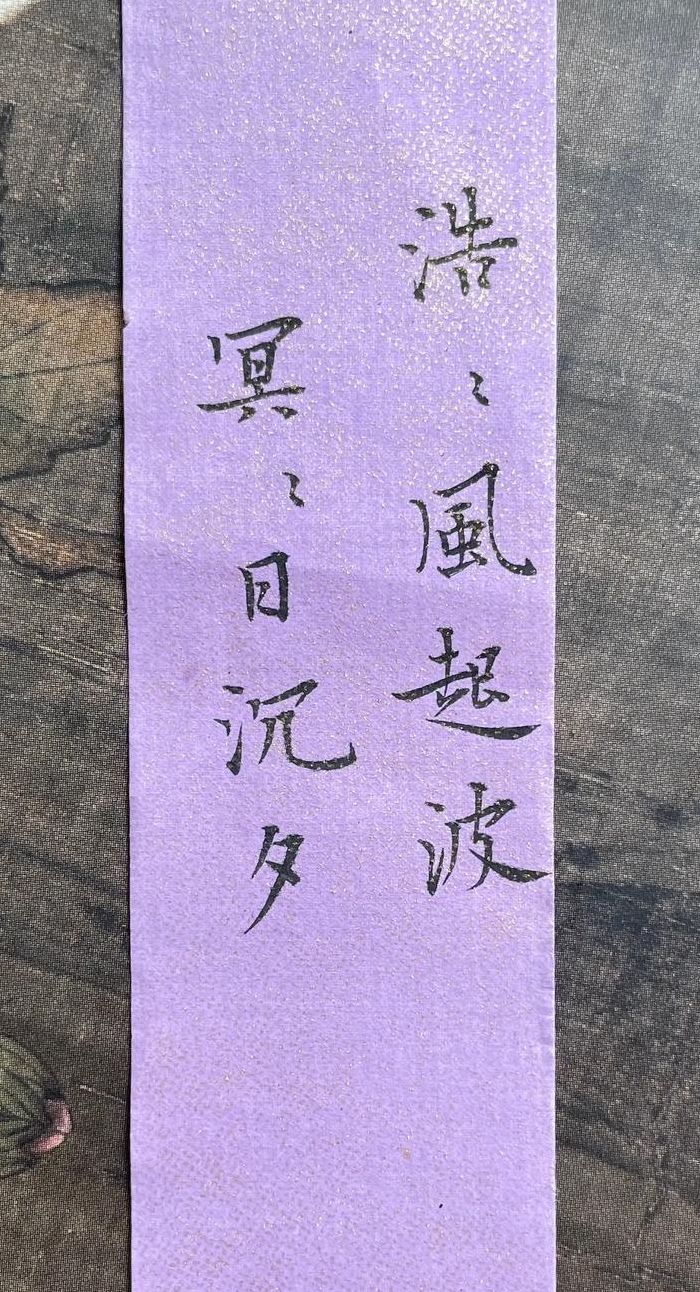 浩〻風起波
冥〻日沉夕